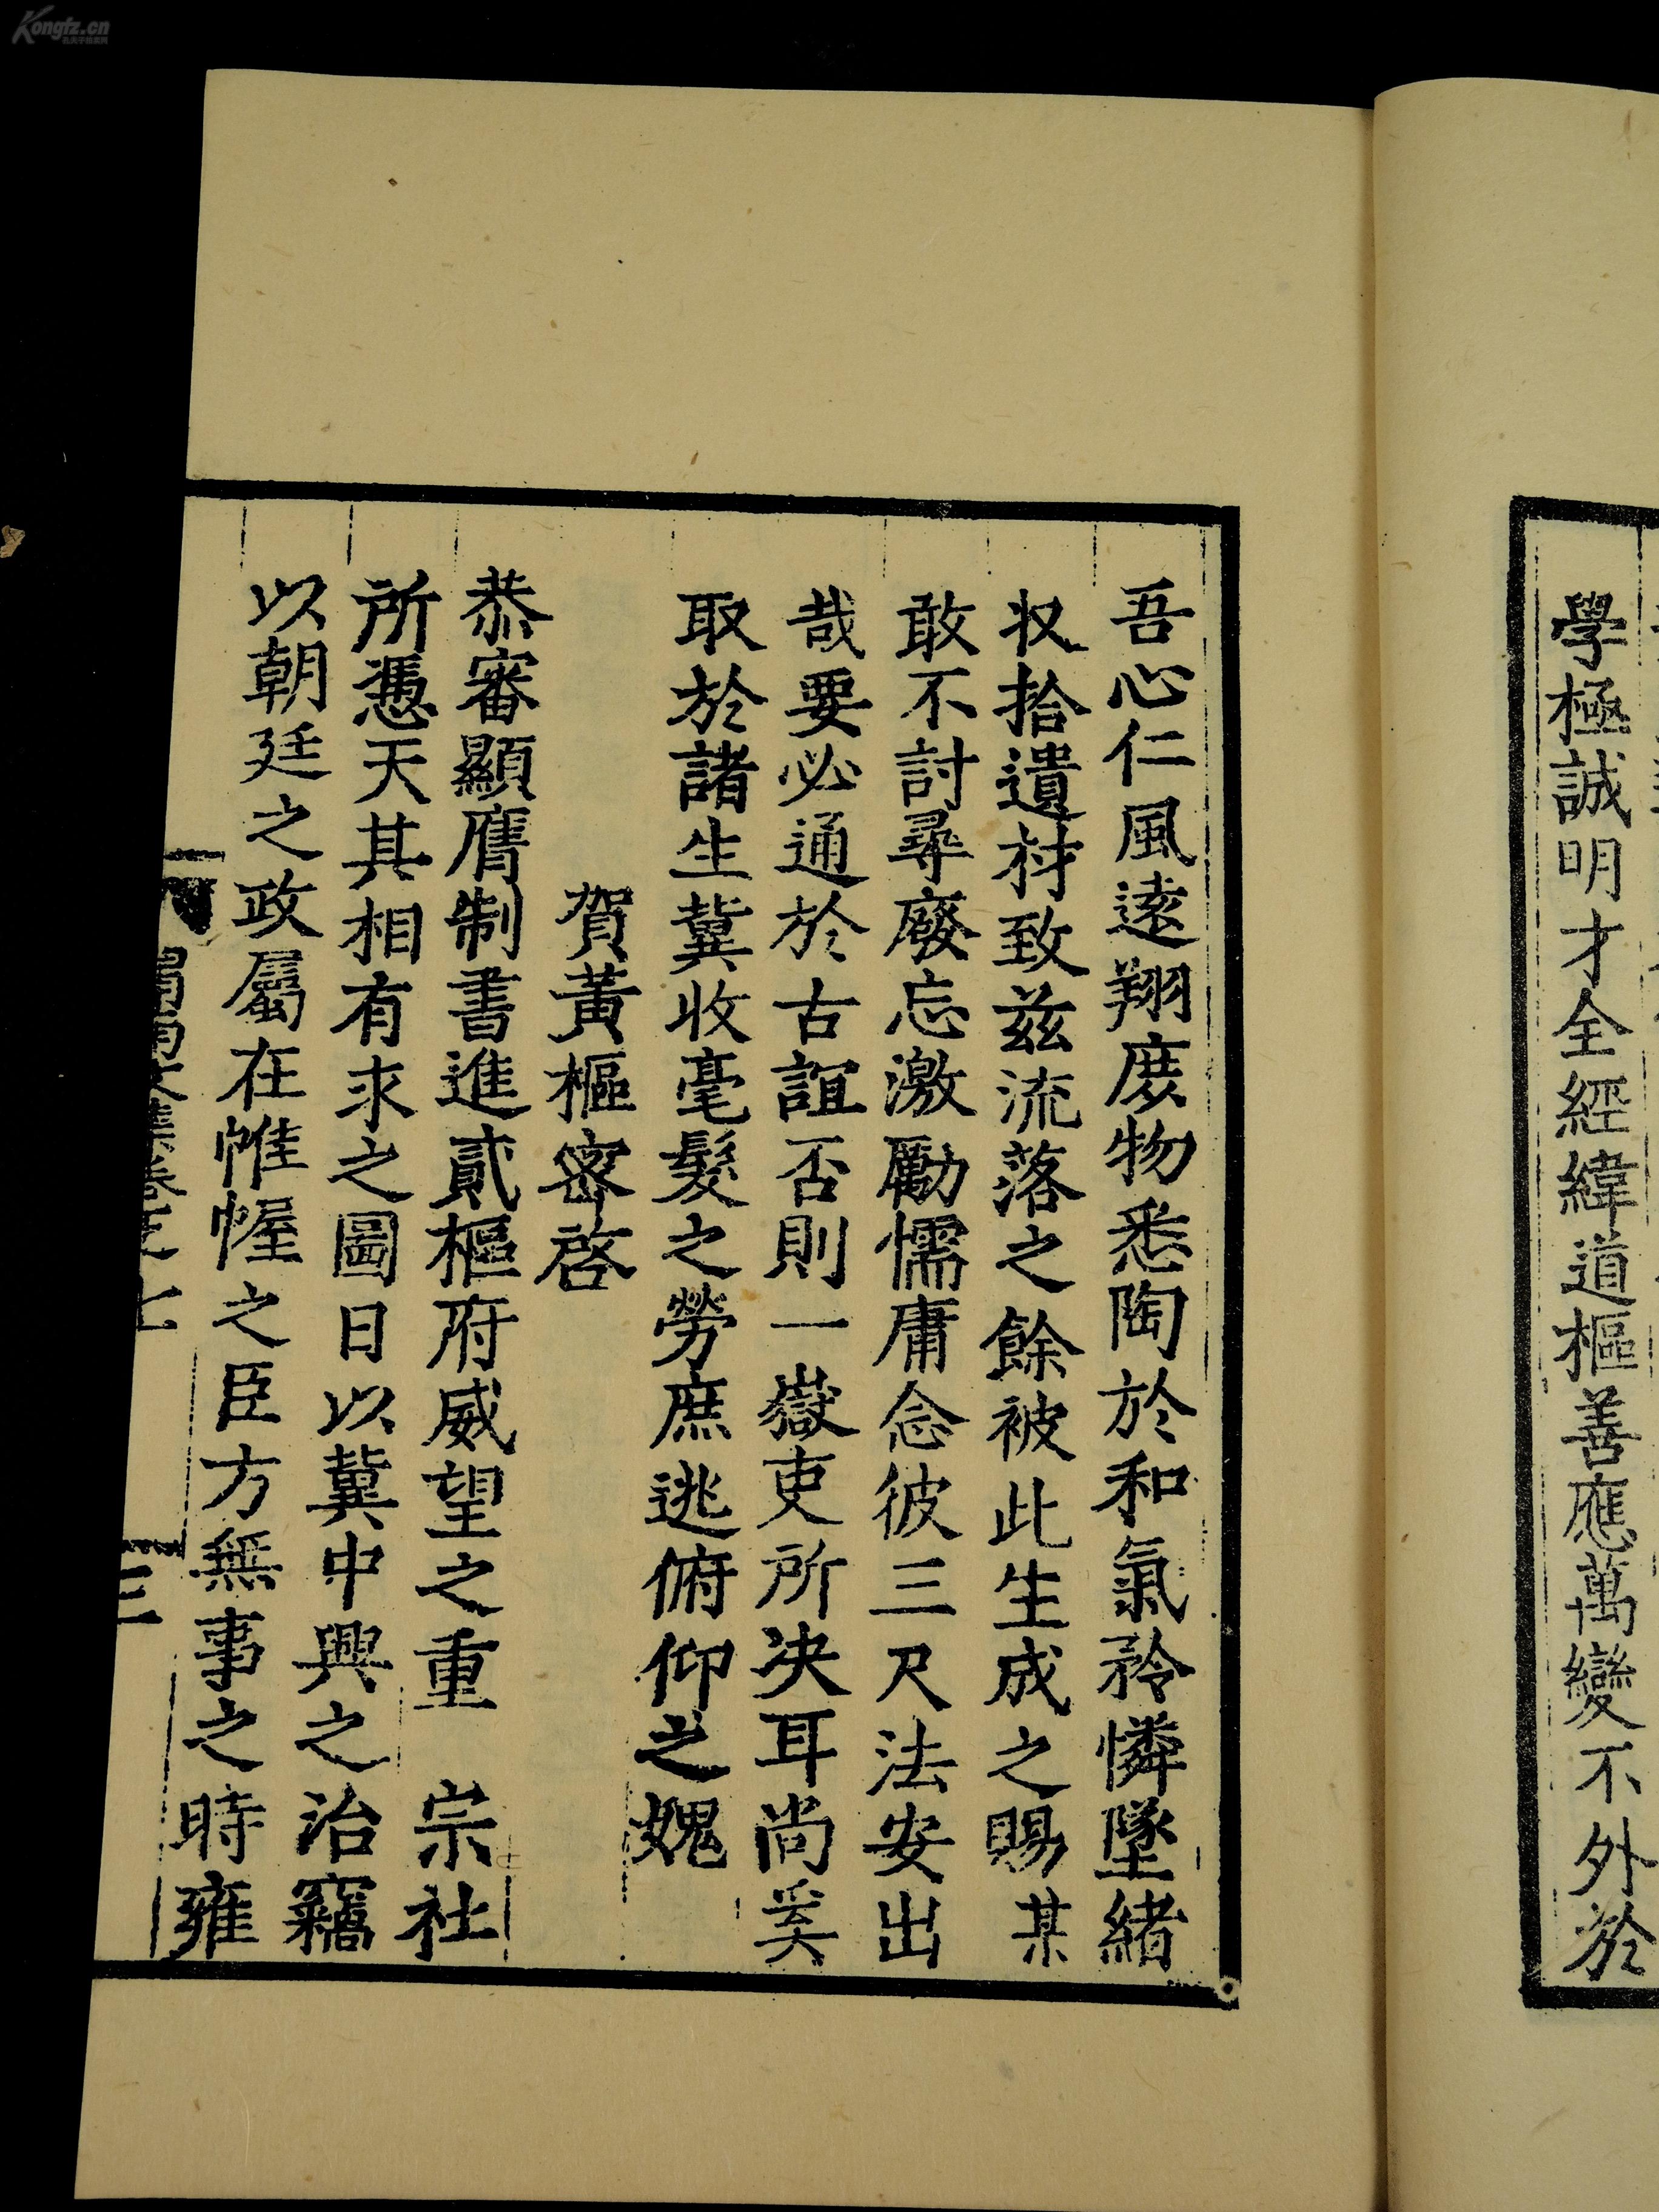 Kongfz.cn
學極誠明才全經緯道樞善應萬變不外於
吾心仁風遠翔庶物悉陶於和氣矜憐墜緒
収拾遺材致茲流落之餘被此生成之賜某
敢不討尋廢忘激勵懦庸念彼三尺法安出
哉要必通於古誼否則一嶽吏所决耳尚奚
取於諸生冀收毫髮之勞庶逃俯仰之媿
賀黃樞密啓
恭審顯膺制書進貳樞府威望之重　宗社
所憑天其相有求之圖日以冀中興之治竊
以朝廷之政屬在帷幄之臣方無事之時雍
三